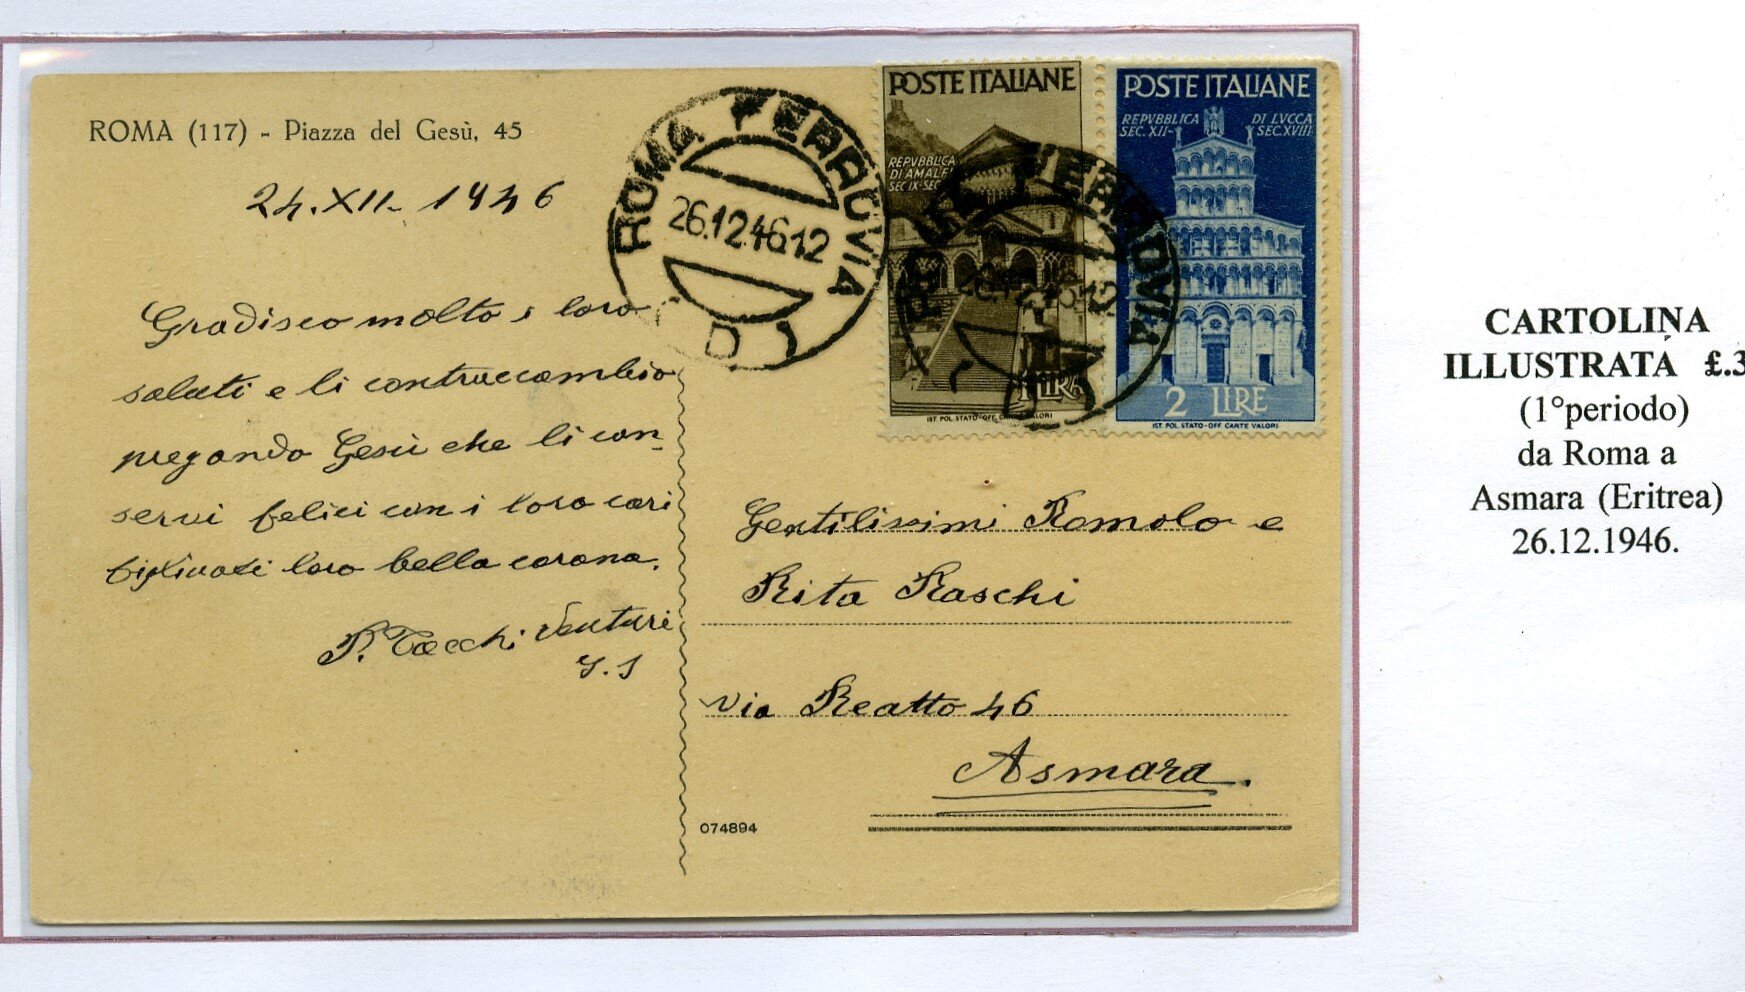 ROMA (117) - Piazza del Gesù, 45
24.XII- 1946
Gradisco molto i loro
saluti e li contraccambio
pregando Gesù che li con
servi felici con i loro cari
figliuoli loro bella corona.
P. Tacchi Venturi
S.J
074894
ROMA FERROVIA
26.12.46.12
POSTE ITALIANE
REPVBBLICA
DI AMALFI
SEC IX-SEC
LIRA
IST. POL. STATO-OFF. CARTE VALORI
POSTE ITALIANE
REPVBBLICA DI LVCCA
SEC. XII- SEC XVIII
2 LIRE
IST. POL. STATO-OFF. CARTE VALORI
FERROVIA
26.12.46.12
Gentilissimi Romolo e
Rita Raschi
Via Reatto 46
Asmara.
CARTOLINA
ILLUSTRATA £.3
(1°periodo)
da Roma a
Asmara (Eritrea)
26.12.1946.